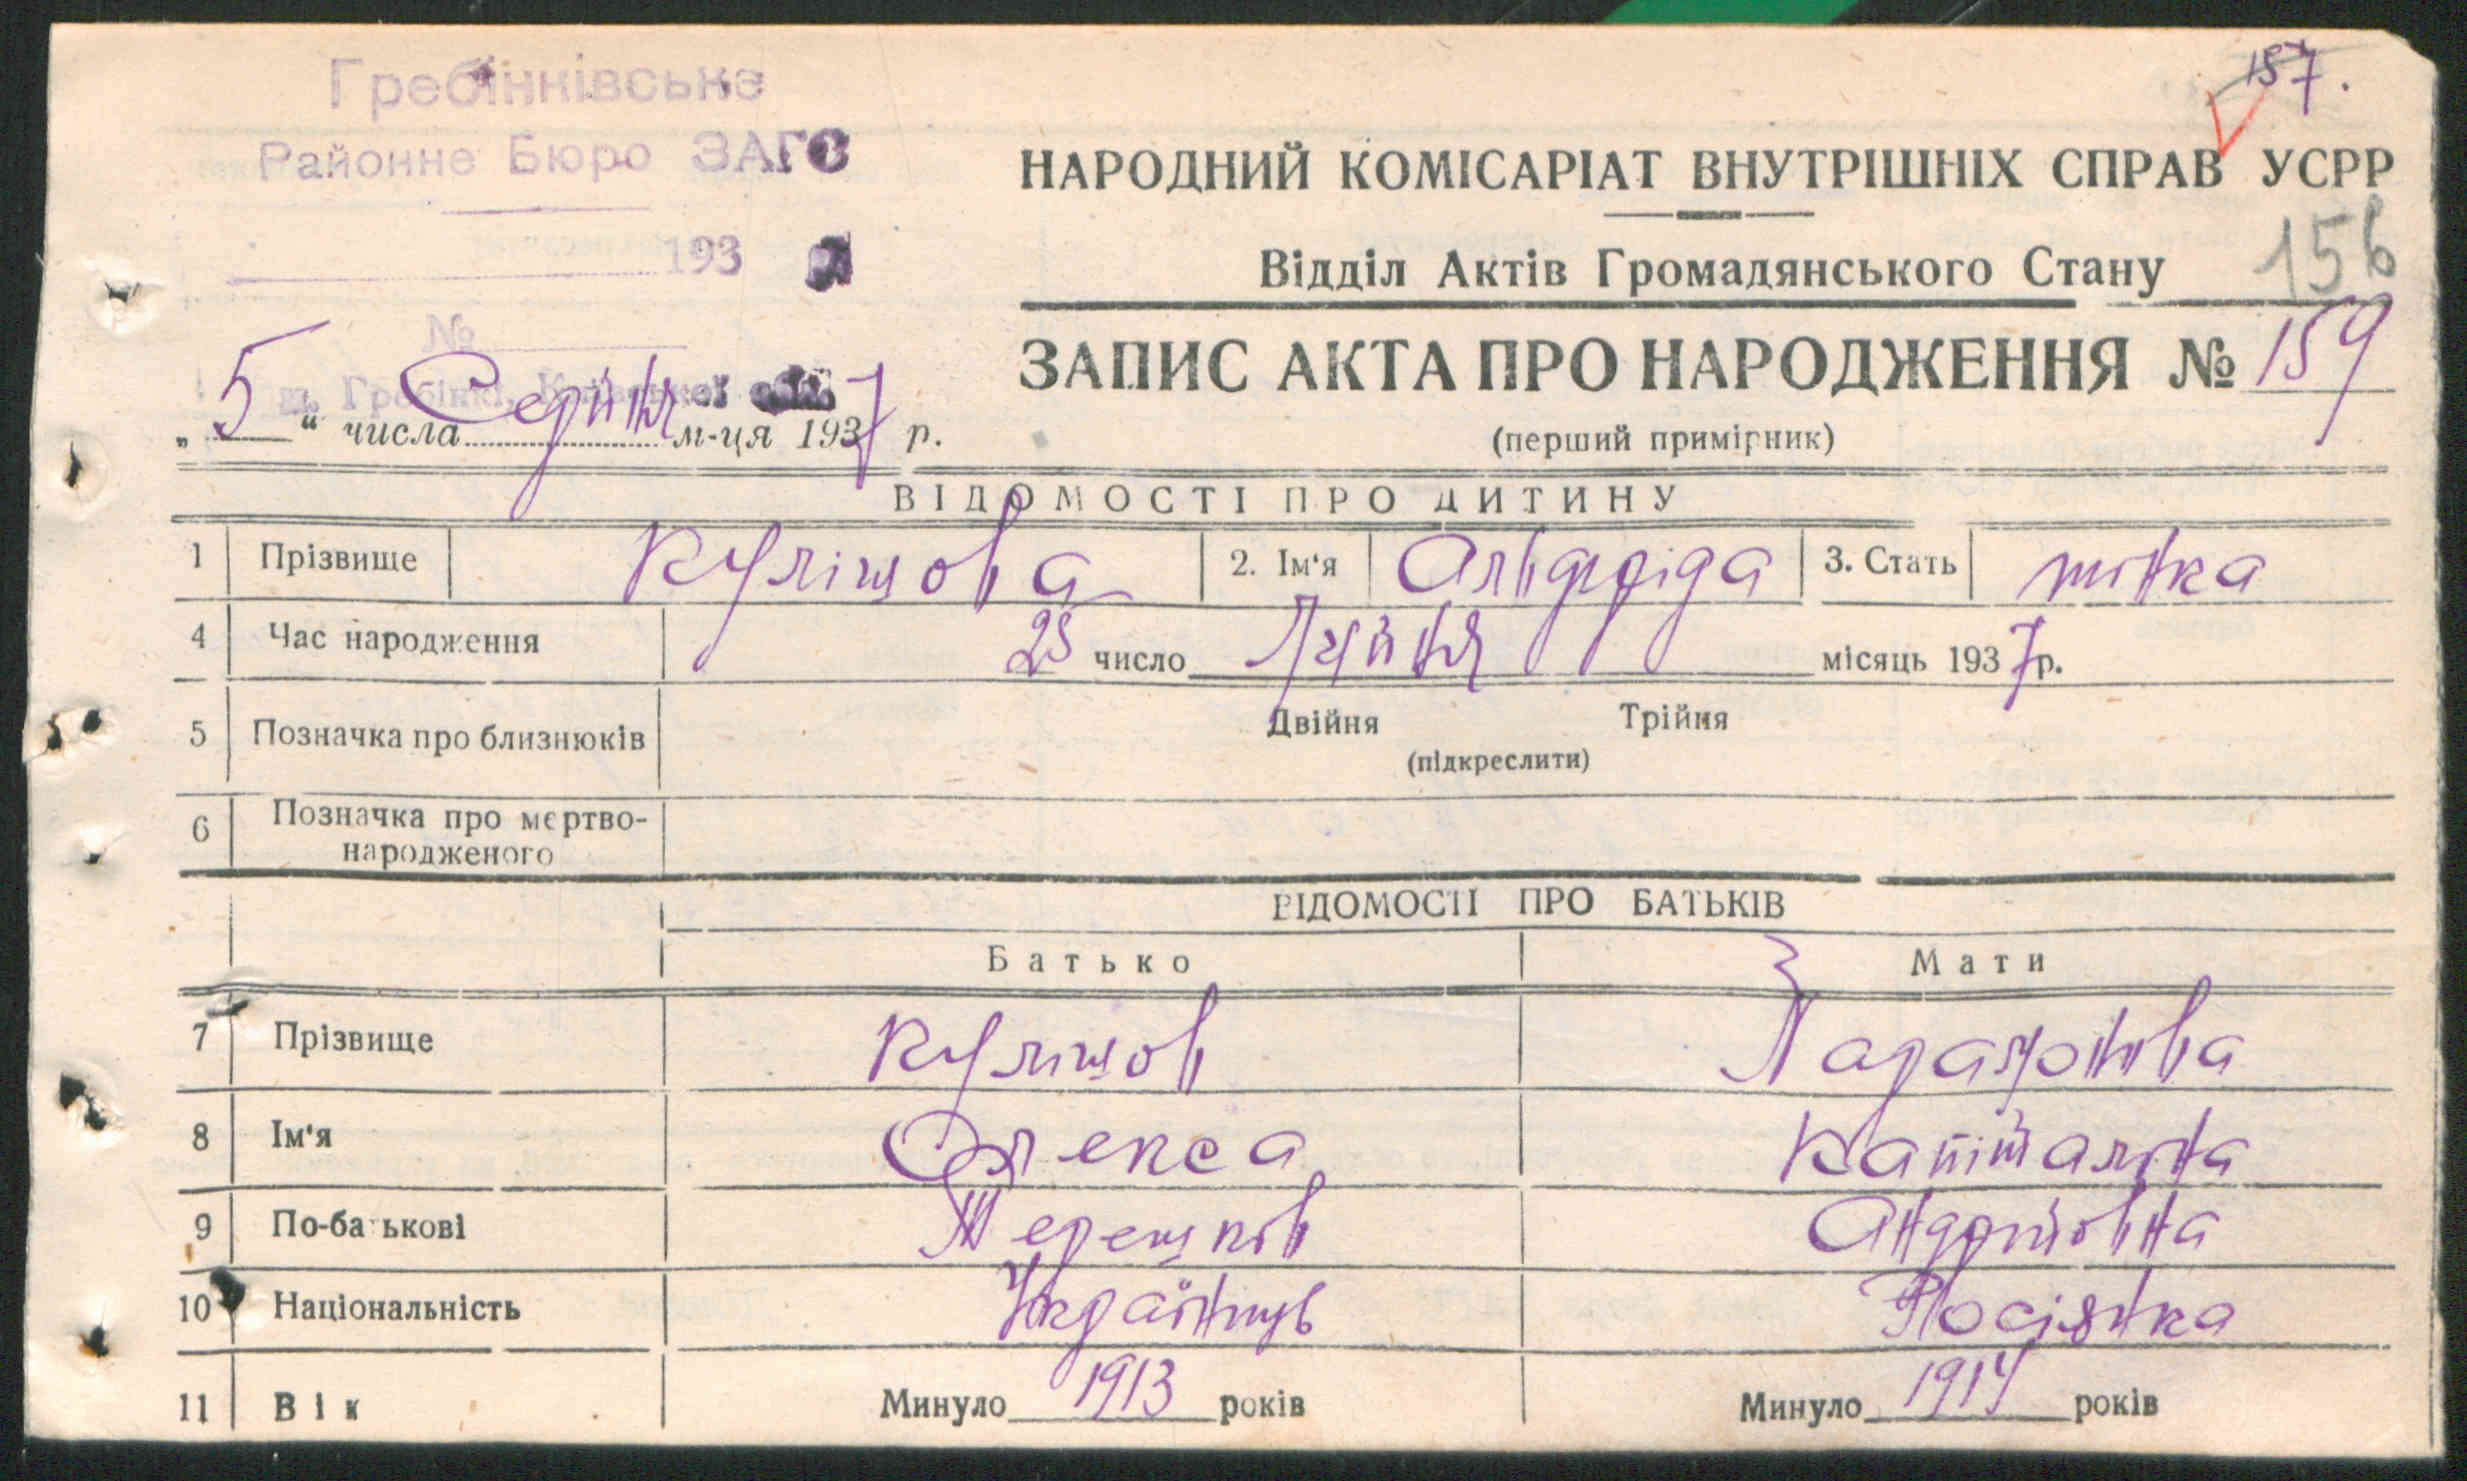 187.
Гребінківське
Районне Бюро ЗАГС
193
№
м. Гребінкі, Київської обл.
НАРОДНИЙ КОМІСАРІАТ ВНУТРІШНІХ СПРАВ УСРР
Відділ Актів Громадянського Стану
156
ЗАПИС АКТА ПРО НАРОДЖЕННЯ № 159
(перший примірник)
„5“ числа Серпня м-ця 1937 р.
ВІДОМОСТІ ПРО ДИТИНУ
1 Прізвище Кулішова 2. Ім'я Альфріда 3. Стать жінка
4 Час народження 25 число Липня місяць 1937 р.
5 Позначка про близнюків Двійня Трійня
(підкреслити)
6 Позначка про мертво-
народженого
ВІДОМОСТІ ПРО БАТЬКІВ
Батько Мати
7 Прізвище Кулішов
8 Ім'я Олекса Капіталіна
9 По-батькові Андріївна
10 Національність Українць Росіянка
11 Вік Минуло 1913 років Минуло 1914 років